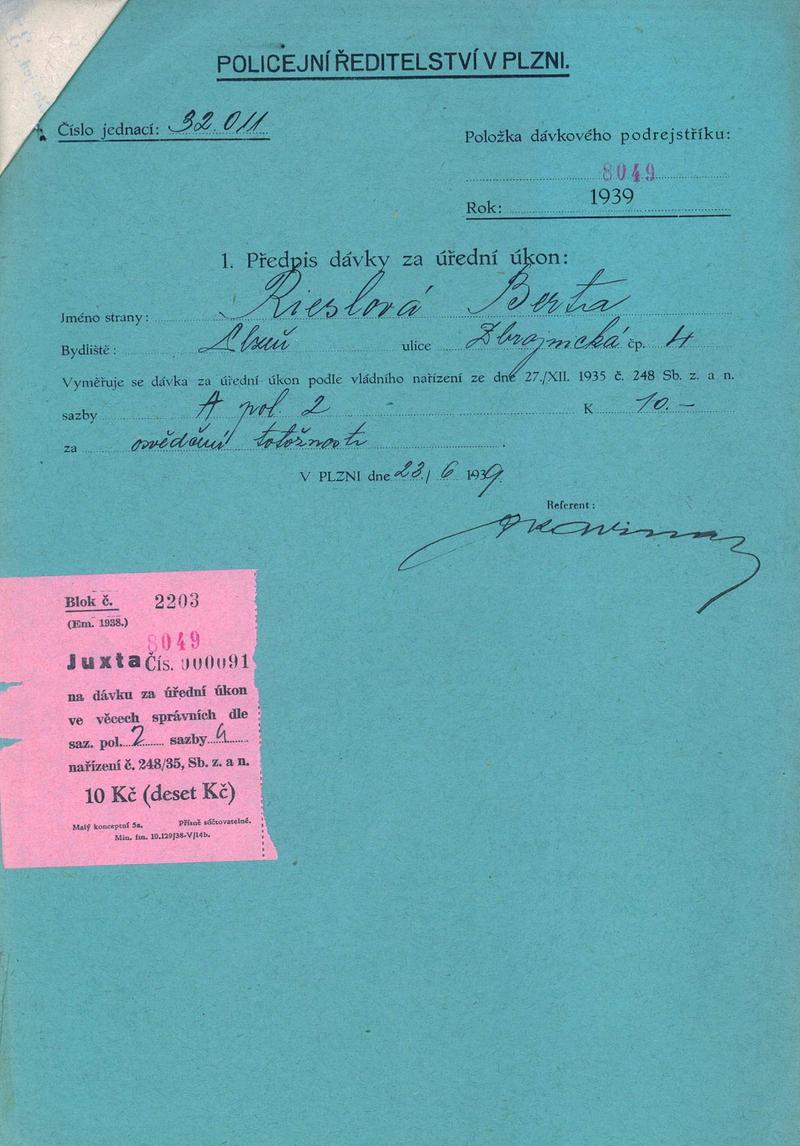 POLICEJNÍ ŘEDITELSTVÍ V PLZNI.
Číslo jednací: 32 011
Položka dávkového podrejstříku:
8049
Rok: 1939
1. Předpis dávky za úřední úkon:
Jméno strany: Rieslová Berta
Bydliště: Plzeň ulice Zbrojnická čp. 4
Vyměřuje se dávka za úřední úkon podle vládního nařízení ze dne 27./XII. 1935 č. 248 Sb. z. a n.
sazby A pol. 2 K 10.-
za osvědčení totožnosti.
V PLZNI dne 23./6 1939.
Referent:
Blok č. 2203
(Em. 1938.)
8049
Juxta Čís. 000091
na dávku za úřední úkon
ve věcech správních dle
saz. pol. 2 sazby
nařízení č. 248/35, Sb. z. a n.
10 Kč (deset Kč)
Malý konceptní 5a. Přísně súčtovatelné.
Min. fin. 10.129/38-V/14b.